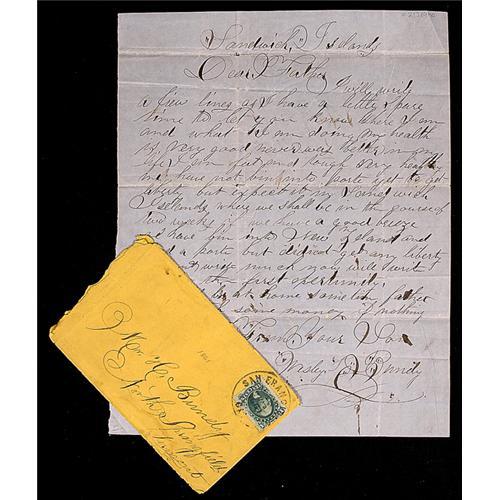 Sandwich Islands
Dear Father
I will write
a few lines as I have a little spare
time to let you know where I am
and what I am doing my health
is very good never was better in my
life I am fat and tough very healthy
we have not bin into porte yet to get
liberty but expect it in Sandwich
Islands where we shall be in the course of
two weeks if we have a good breeze
we have bin into New and
a porte but didn't get any liberty
wright much now will write
the first opertunity
at home some time father
some money if nothing
From Your Son
Bundy
SAN FRANC
1861
Mr. H. Bundy
North Springfield
Vermont